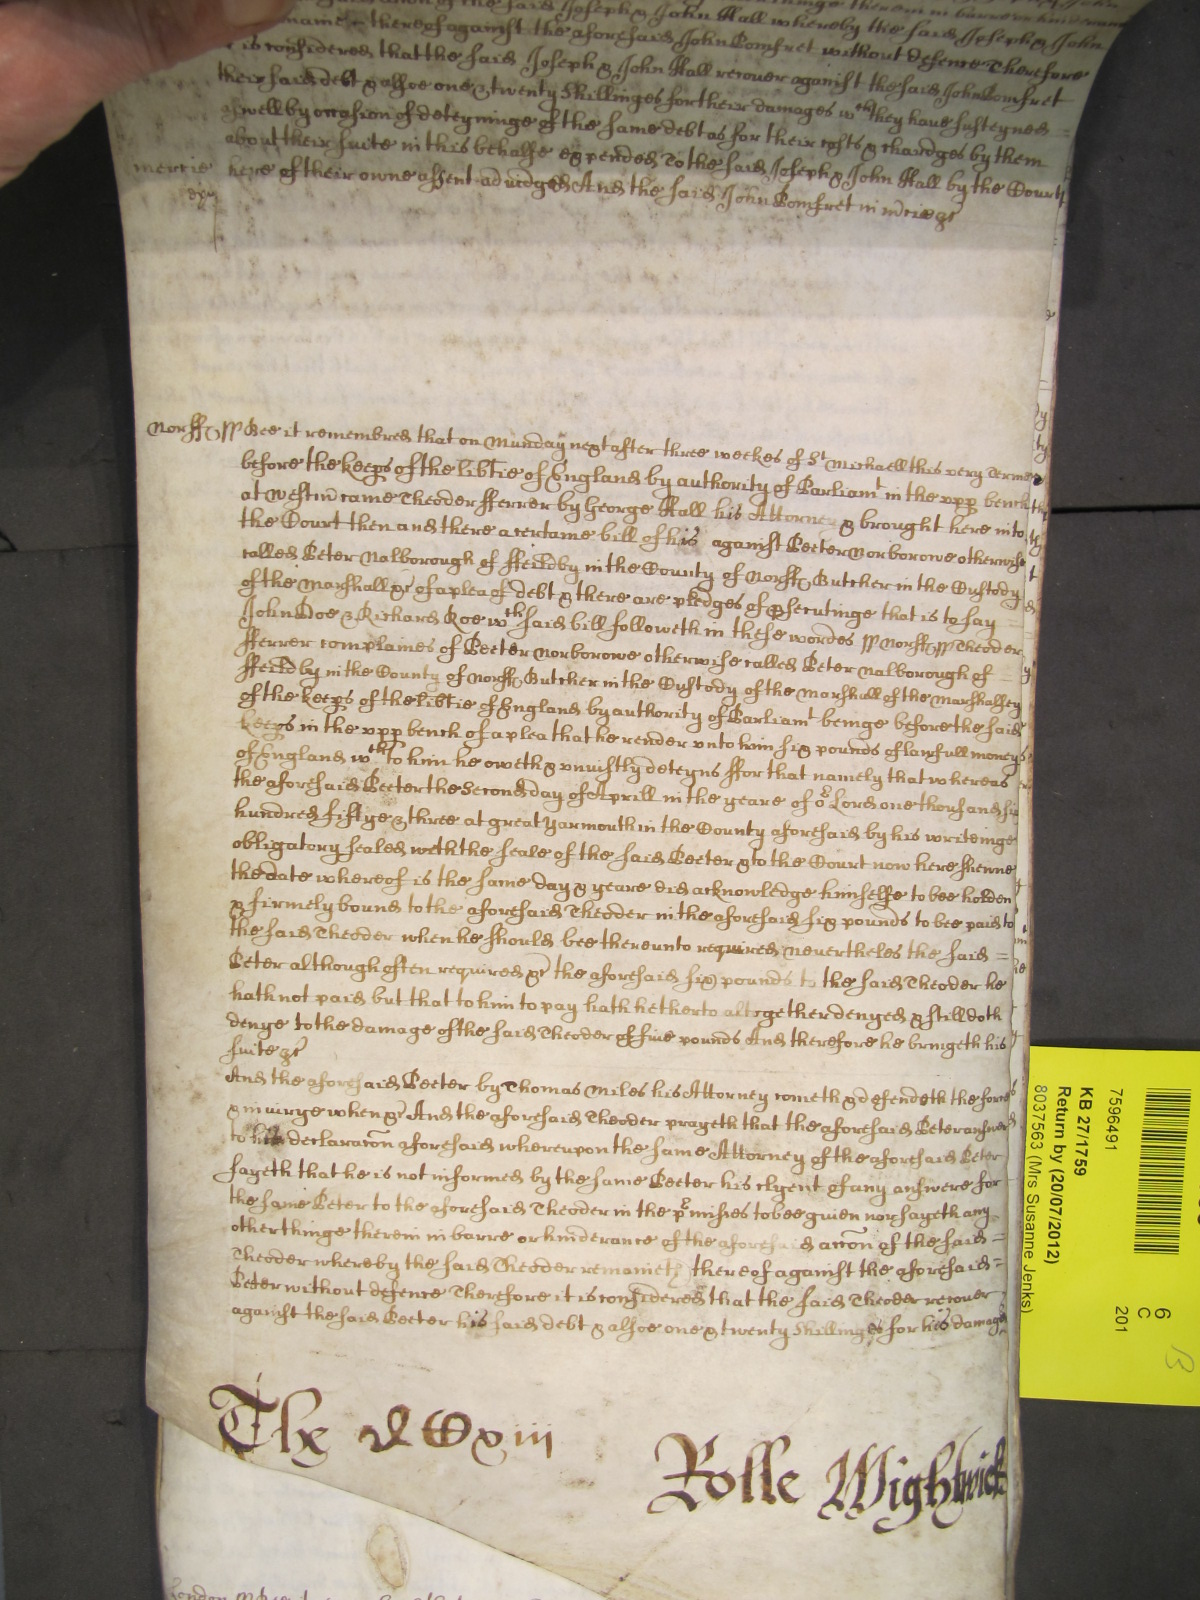 of the said Joseph & John Hall whereby the said Joseph & John
thereof against the aforesaid John Pomfret without defence Therefore
it is considered that the said Joseph & John Hall recover against the said John Pomfret
their said debt & alsoe one & twenty shillinges for their damages wch they have susteyned =
aswell by occasion of deteyninge of the same debt as for their costs & chardges by them
about their suite in this behalfe expended To the said Joseph & John Hall by the Court
mercie here of their owne assent adiudged And the said John Pomfret in mcie &c
Norff & ss Bee it remembred that on Munday next after three weekes of St Michaell this very Terme
before the keeps of the libtie of England by authority of Parliamt in the upp bench
at Westm came Theoder Fferrer by George Hall his Attorney & brought here into
the Court then and there a certaine bill of his against Peeter Norborowe otherwise
called Peter Nalborough of Ffeildby in the County of Norff Butcher in the Custody
of the Marshall &c of a plea of debt & there are pledges of psecutinge that is to say
John Doe & Richard Roe wch said bill followeth in these wordes ss Norff ss Theoder
Fferrer complaines of Peeter Norborowe otherwise called Peter Nalborough of =
Ffeildby in the County of Norff Butcher in the Custody of the Marshall of the Marshallsey
of the keeps of the libtie of England by authority of Parliamt beinge before the said
keeps in the upp bench of a plea that he render unto him six pounds of lawfull money
of England wch to him he oweth & uniustly deteyns Ffor that namely that whereas
the aforesaid Peeter the Second day of Aprill in the yeare of or Lord one thousand six
hundred fiftye & three at great Yarmouth in the County aforesaid by his writeinge
obligatory sealed with the seale of the said Peeter & to the Court now here shewne
the date whereof is the same day & yeare did acknowledge himselfe to bee holden
& firmely bound to the aforesaid Theoder in the aforesaid six pounds to bee paid to
the said Theoder when he should bee thereunto required nevertheles the said =
Peter although often required &c the aforesaid six pounds to the said Theoder he
hath not paid but that to him to pay hath hetherto altogether denyed & still doth
denye to the damage of the said Theoder of five pounds And therefore he bringeth his
suite &c
And the aforesaid Peeter by Thomas Miles his Attorney cometh & defendeth the force
& iniurye when &c And the aforesaid Theoder prayeth that the aforesaid Peter answer
to his declaracon aforesaid whereupon the same Attorney of the aforesaid Peter
sayeth that he is not informed by the same Peeter his clyent of any answere for
the same Peter to the aforesaid Theoder in the pmisses to bee given nor sayeth any
other thinge therein in barre or hinderance of the aforesaid accon of the said =
Theoder whereby the said Theoder remaineth thereof against the aforesaid =
Peter without defence Therefore it is considered that the said Theoder recover
against the said Peeter his said debt & alsoe one & twenty Shillinges for his damage
xiii
Rolle Wightwick
London
6
C
201
7596491
KB 27/1759
Return by (20/07/2012)
8037563 (Mrs Susanne Jenks)